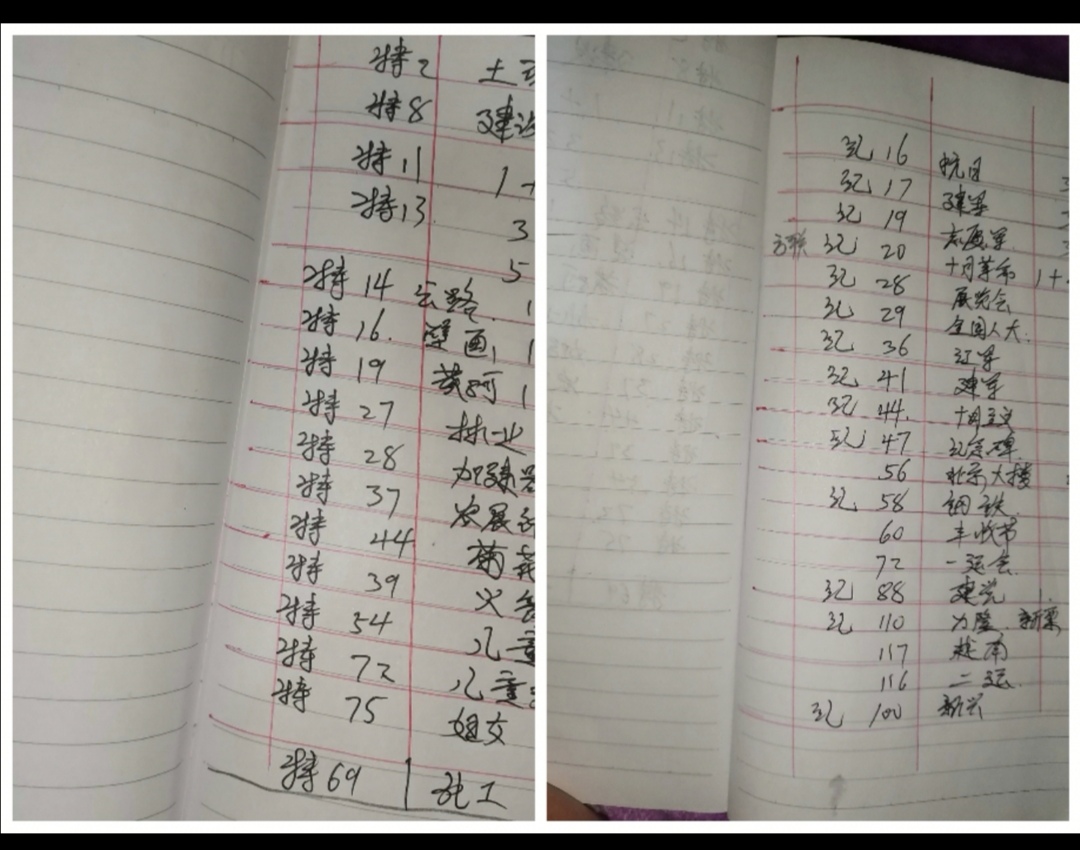 特2 土
特8 建设
特11 1+
特13 3
5
特14 公路. 1
特16. 壁画, 1
特19 黄河 1
特27 林业
特28 加强
特37 农展
特44 菊花
特39
特54 儿童
特72 儿童
特75 妇女
特69 化工
纪16 抗日
纪17 建军
纪19 志愿军
纪20 十月革命 1+
纪28 展览会
纪29 全国人大
纪36 红军
纪41 建军
纪44.
纪47 纪念碑
56 北京大楼
纪58 钢铁
60 丰收节
72 一运会
纪88 建党 1
纪110 新票
117 越南
116 二运
纪100